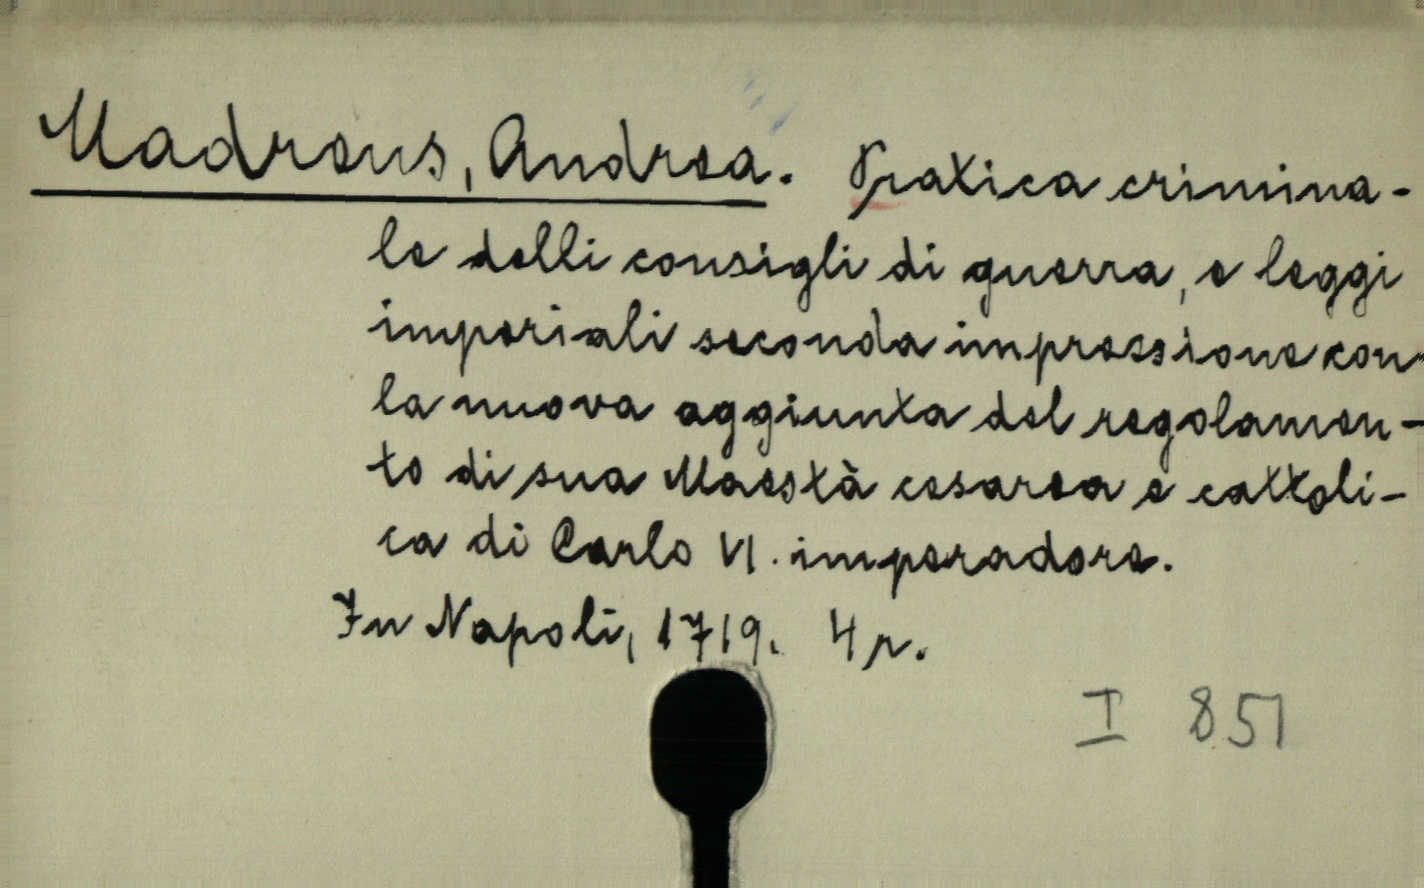 Madreus, Andrea. Pratica crimina-
le delli consigli di guerra, e leggi
imperiali seconda impressione con
la nuova aggiunta del regolamen-
to di sua Maestà cesarea e cattoli-
ca di Carlo VI. imperadore.
In Napoli, 1719. 4r.
I 851